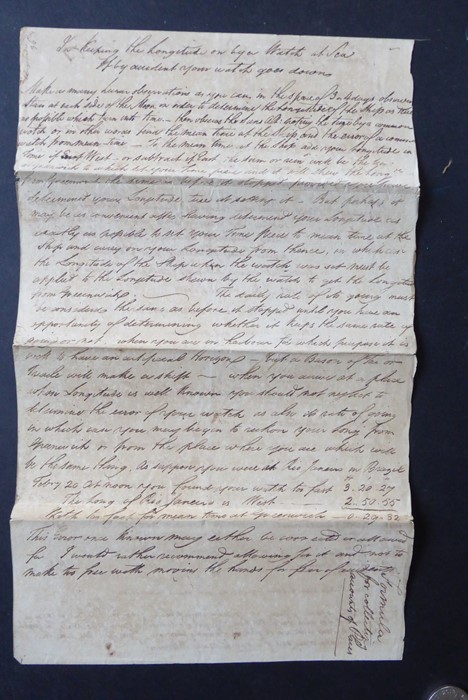 For keeping the Longitude on by a Watch at Sea
If by accident your watch goes down
Make as many lunar observations as you can in the space of 3 or 4 days observing
Stars at each side of the Moon in order to determine the Longitude of the Ship as near
as possible which turn into time then observe the Suns Alt. noting the time by a common
watch or in other words find the mean time at the Ship and the error of a common
watch from mean time - To the mean time at the Ship add your Longitude in
Time if West - or subtract if East the sum or
the same as before it stopped
determined your Longitude since it setting it - But perhaps it
may be as convenient after having determined your Longitude as
exactly as possible to set your Time piece to mean time at the
Ship and carry on your Longitude from thence, in which case
the Longitude of the Ship when the watch was set must be
applied to the Longitude shewn by the watch to get the Longitude
from Greenwich The daily rate of its going must
be considered the same as before it stopped until you have an
opportunity of determining whether it keeps the same rate of
going or not when you are in harbour for which purpose it is
well to have an artificial Horizon but a Bason of Tar or
Treacle will make a shift - when you arrive at a place
whose Longitude is well known you should not neglect to
determine the error of your watch as also its rate of going
in which case you may begin to reckon your Long. from
Greenwich or from the place where you are which will
be the same thing, as suppose you were at Rio Janeiro in Brazil
Feby 20 at noon you found your watch too fast 3. 20. 27
The Long. of Rio Janeiro is West 2. 50. 55
Watch too fast for mean time at Greenwich 0. 29. 32
This error once known may either be corrected or allowed
for I would rather recommend allowing for it and not to
make too free with moving the hands for fear of
Formula
for collecting
accounts of